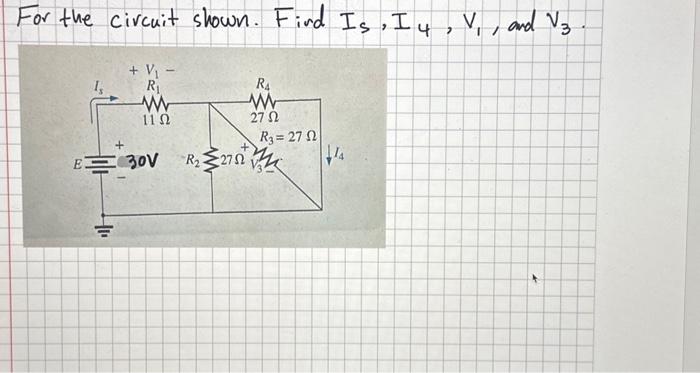 For the circuit shown. Find Is, I4, V1, and V3.
+ V1 −
Is R1 R4
11 Ω 27 Ω
R3 = 27 Ω
+ +
E 30V R2 27Ω V3 I4
− −